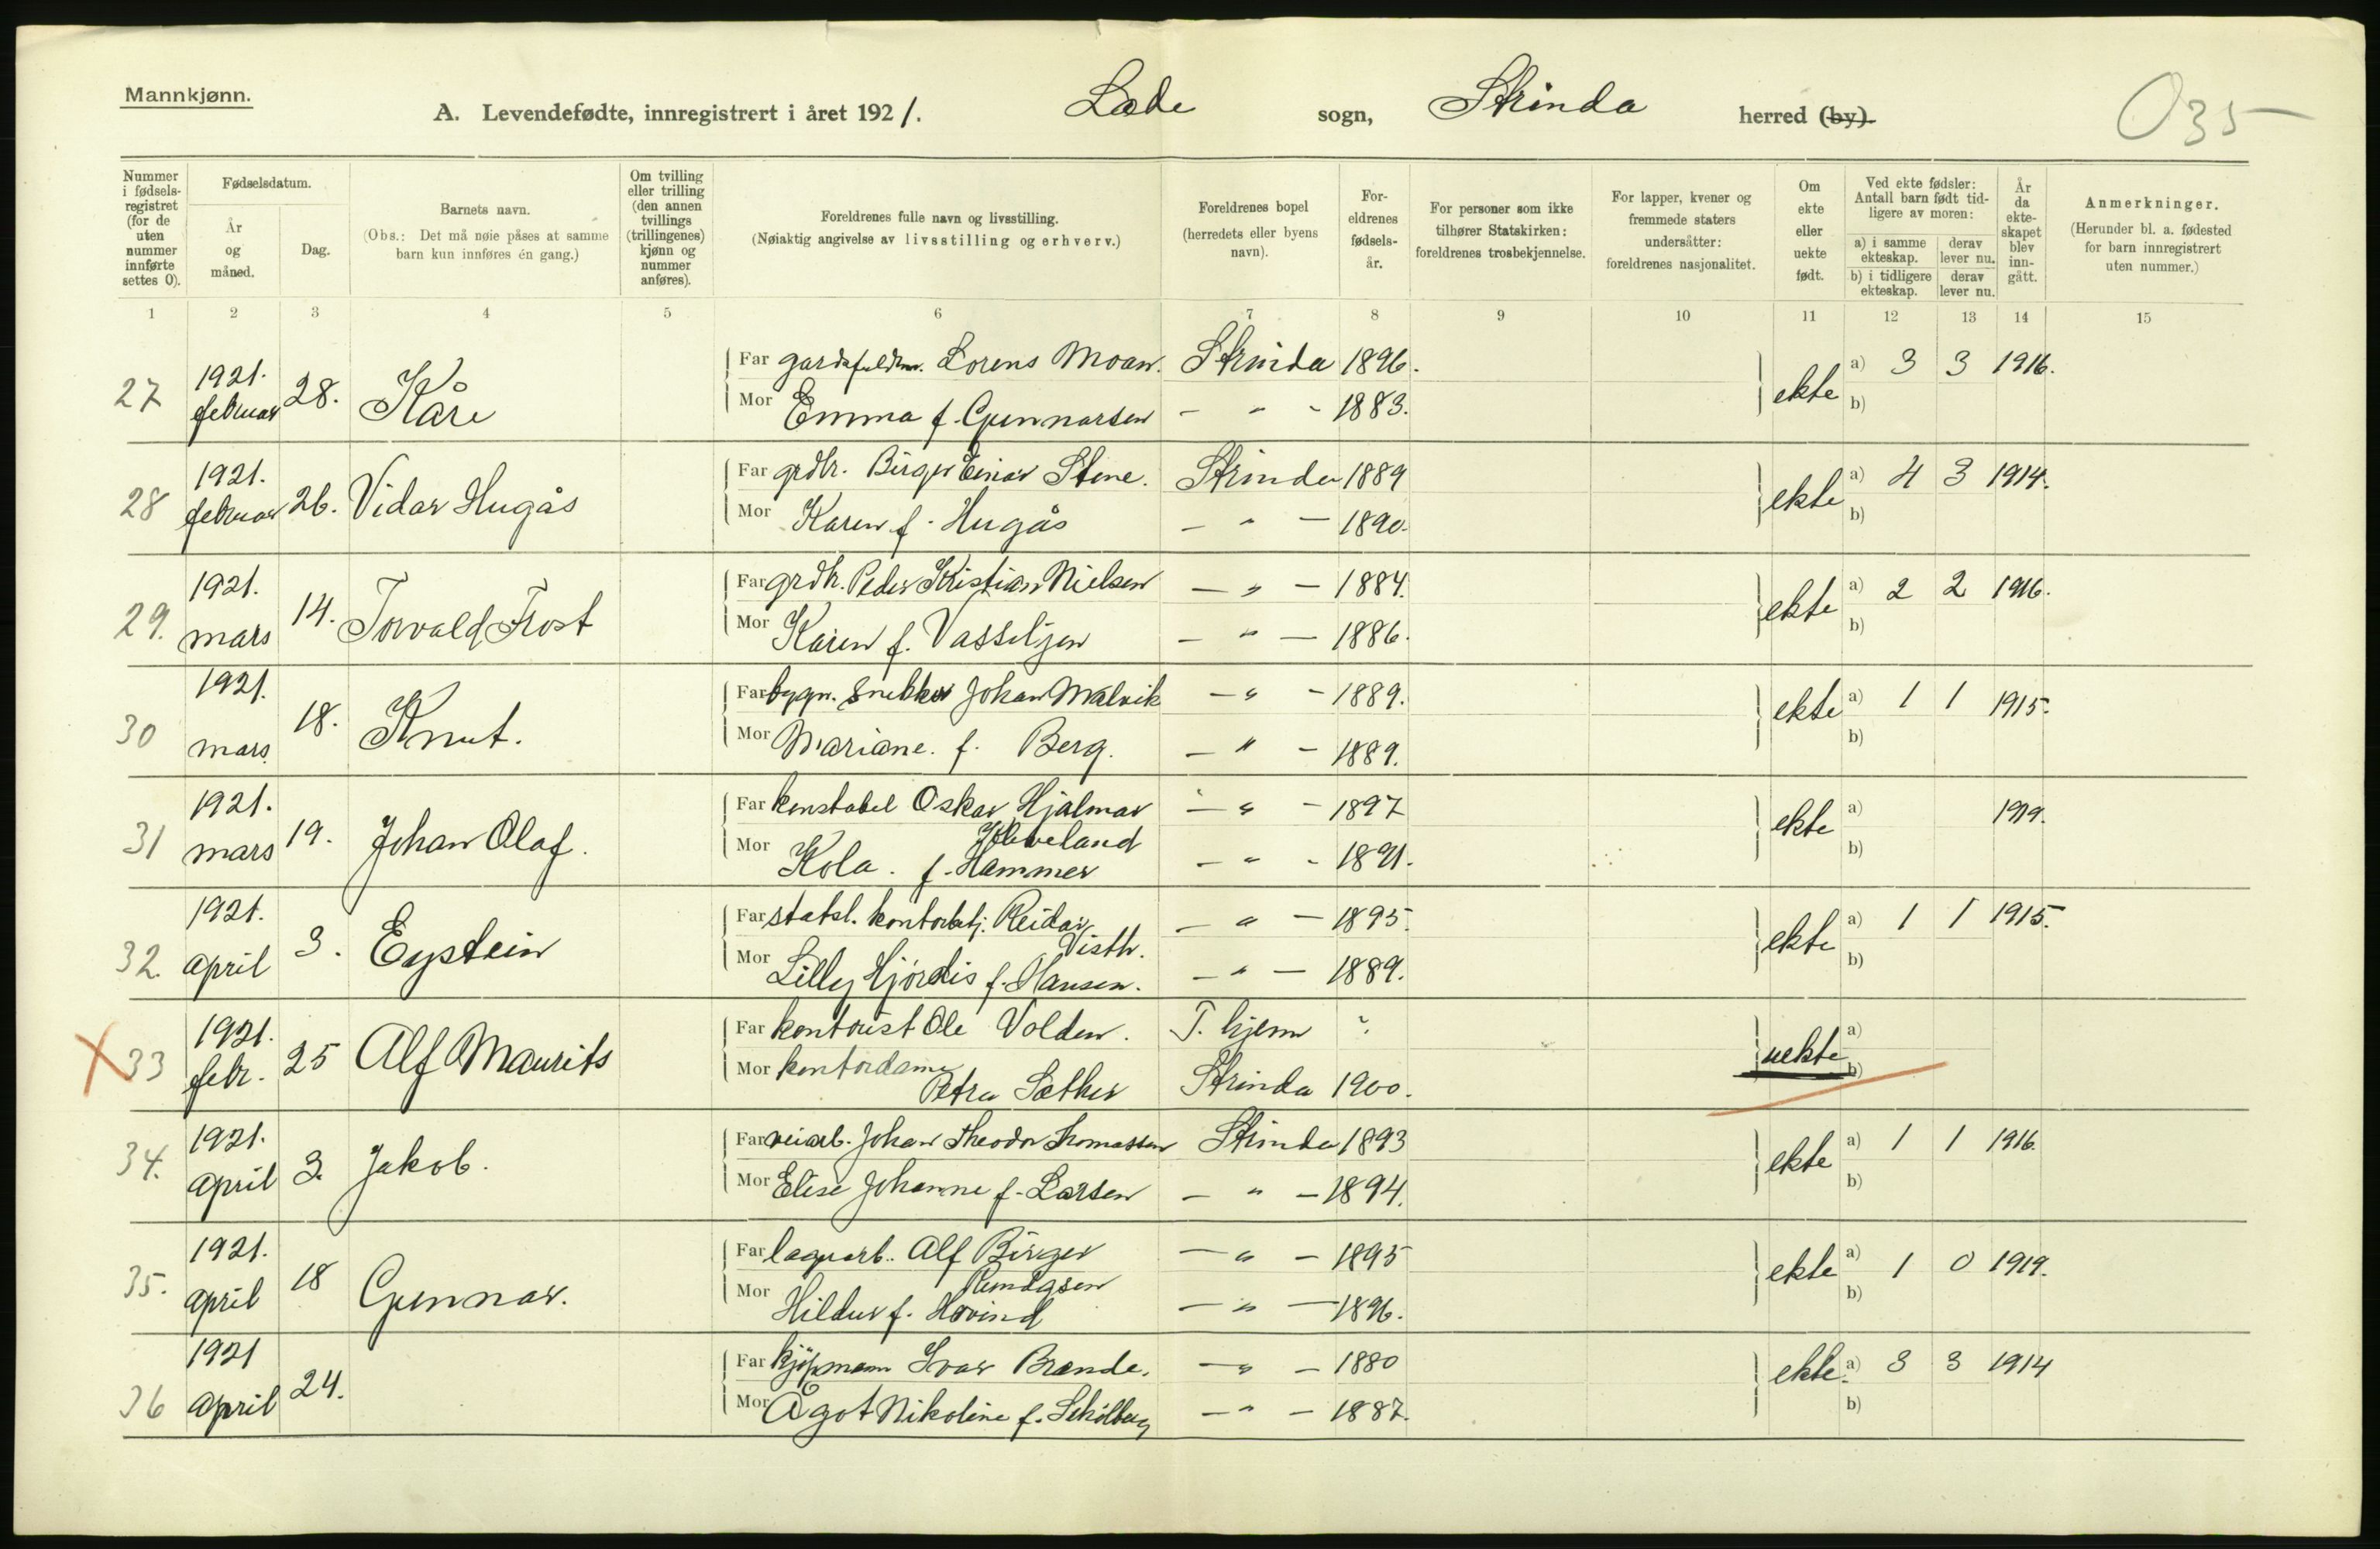 Mannkjønn.
A. Levendefødte, innregistrert i året 1921. Lade sogn, Strinda herred (by).
035
Nummer i fødselsregistret (for de uten nummer innførte settes 0).
Fødselsdatum.
År og måned.
Dag.
Barnets navn.
(Obs.: Det må nøie påses at samme barn kun innføres én gang.)
Om tvilling eller trilling (den annen tvillings (trillingenes) kjønn og nummer anføres).
Foreldrenes fulle navn og livsstilling.
(Nøiaktig angivelse av livsstilling og erhverv.)
Foreldrenes bopel (herredets eller byens navn).
Foreldrenes fødselsår.
For personer som ikke tilhører Statskirken: foreldrenes trosbekjennelse.
For lapper, kvener og fremmede staters undersåtter: foreldrenes nasjonalitet.
Om ekte eller uekte født.
Ved ekte fødsler: Antall barn født tidligere av moren:
a) i samme ekteskap. derav lever nu.
b) i tidligere ekteskap. derav lever nu.
År da ekteskapet blev inngått.
Anmerkninger.
(Herunder bl. a. fødested for barn innregistrert uten nummer.)
1 2 3 4 5 6 7 8 9 10 11 12 13 14 15
27 1921. februar 28. Kåre Far Lorens Moan. Strinda 1896. ekte a) 3 3 1916.
Mor Emma f. Gunnarsen - " - 1883. b)
28 1921. februar 26. Vidar Hugås Far grdbr. Birger Einar Stene. Strinda 1889 ekte a) 4 3 1914.
Mor Karen f. Hugås - " - 1890. b)
29. 1921. mars 14. Torvald Frost Far grdbr. Peder Kristian Nielsen - " - 1884. ekte a) 2 2 1916.
Mor Karen f. Vasseljen - " - 1886. b)
30 1921. mars 18. Knut. Far bygn. snekker Johan Malvik - " - 1889. ekte a) 1 1 1915.
Mor Mariane. f. Berg. - " - 1889. b)
31 1921. mars 19. Johan Olaf. Far konstabel Oskar Hjalmar Kleveland - " - 1897 ekte a) 1919.
Mor Kola. f. Hammer - " - 1891. b)
32. 1921. april 3. Eystein Far statsl. kontorbetj. Reidar Visth. - " - 1895. ekte a) 1 1 1915.
Mor Lilly Hjórdis f. Hansen. - " - 1889. b)
X 33 1921. febr. 25 Alf Maurits Far kontorist Ole Volden. T. hjem ? uekte a)
Mor kontordame Petra Sæther Strinda 1900. b)
34. 1921. april 3. Jakob. Far veiarb. Johan Theodor Thomassen Strinda 1893 ekte a) 1 1 1916.
Mor Elise Johanne f. Larsen - " - 1894. b)
35. 1921. april 18 Gunnar. Far lagerarb. Alf Birger - " - 1895 ekte a) 1 0 1919.
Mor Hildur f. Hovind - " - 1896. b)
36 1921 april 24. Far kjøpmann Ivar Brande. - " - 1880 ekte. a) 3 3 1914
Mor Ågot Nikoline f. - " - 1887. b)